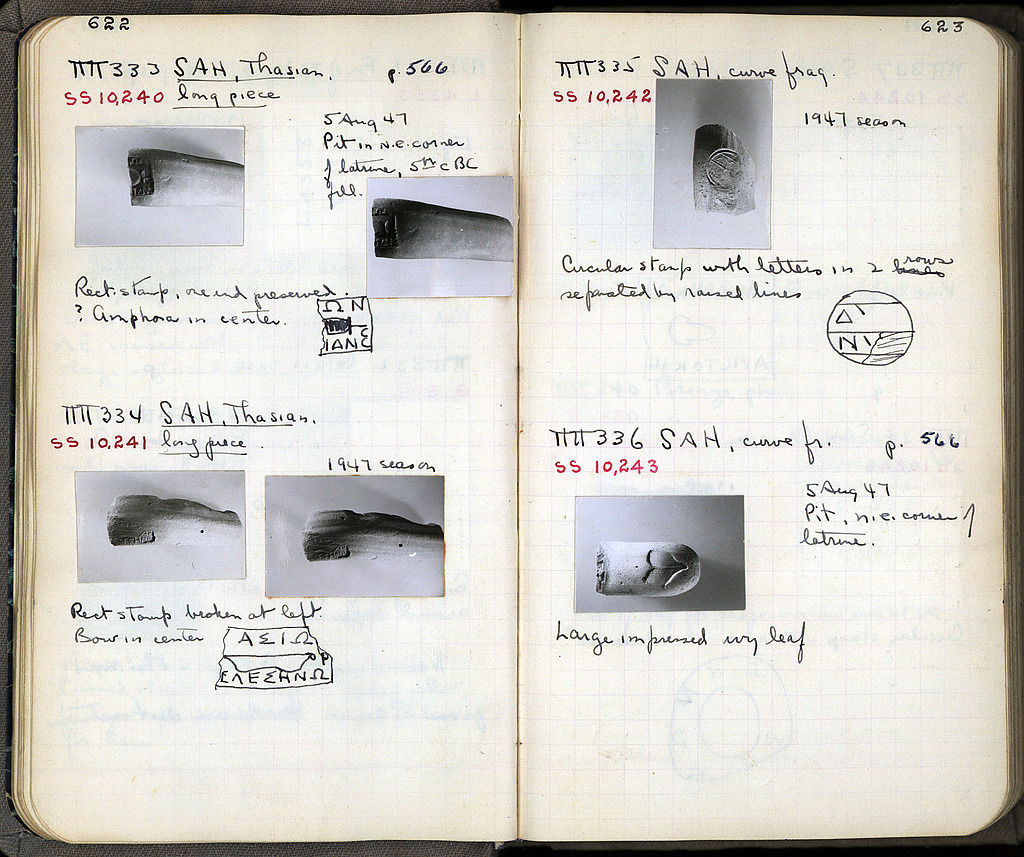 622
ΠΠ333 SAH, Thasian, p. 566
SS 10,240 long piece
5 Aug 47
Pit in n.e. corner
of latrine, 5th c BC
fill.
Rect. stamp, one end preserved.
? Amphora in center.
ΩΝ
ΙΑΝΣ
ΠΠ334 SAH, Thasian.
SS 10,241 long piece.
1947 season
Rect stamp broken at left.
Bow in center
ΑΣΙΩ
ΕΛΕΣΗΝΩ
623
ΠΠ335 SAH, curve frag.
SS 10,242
1947 season
Circular stamp with letters in 2 lines rows
separated by raised lines
Δ
Ν
ΠΠ336 SAH, curve fr. p. 566
SS 10,243
5 Aug 47
Pit, n.e. corner of
latrine.
Large impressed ivy leaf